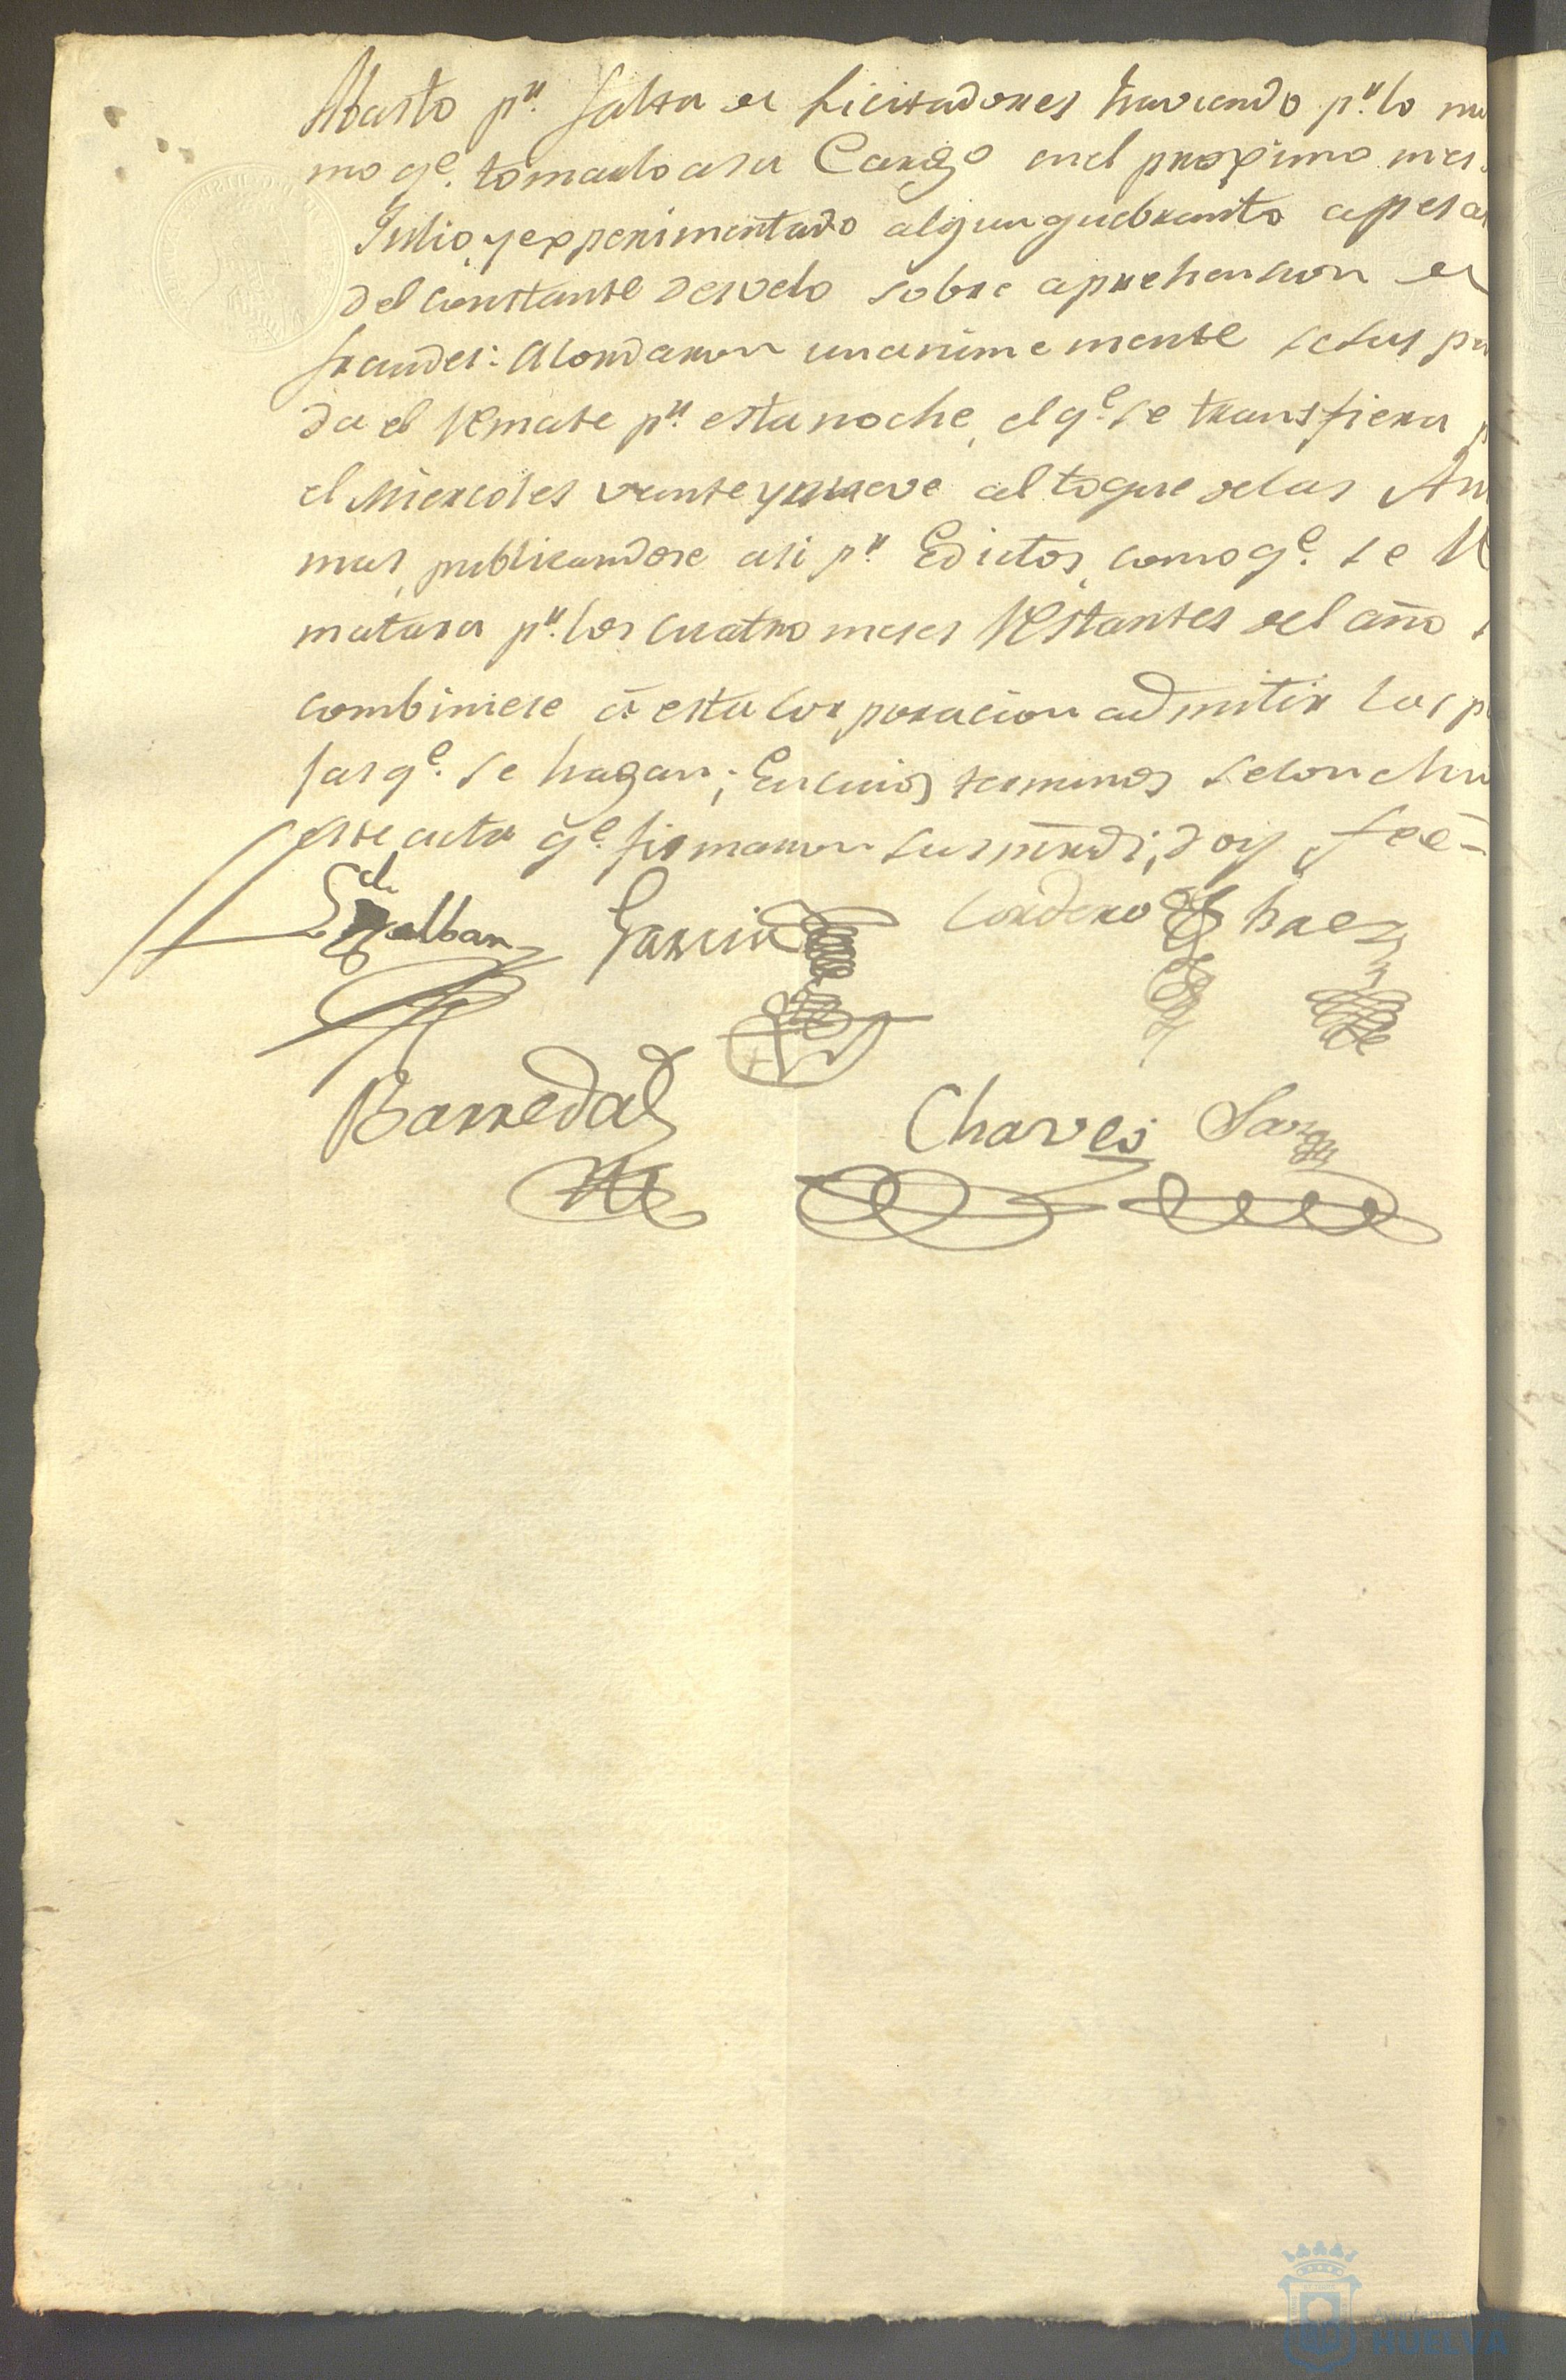 Abasto pr. falta de licitadores haviendo pr. lo mis
mo qe. tomarlo a su Cargo en el proximo mes
Julio, y experimentado algun quebranto apesar
del constante desvelo sobre aprehension de
fraudes: Acordaron unanimemente se suspen
da el Remate pr. esta noche, el qe. se transfiera p
el Miercoles veinte y nueve al toque de las Ani
mas, publicandose asi pr. Edictos, como qe. se Re
matara pr. los cuatro meses Restantes del año s
combiniese á esta corporacion admitir las p
sas qe. se hagan; En cuios terminos se concluio
este acta qe. firmaron sus mrds; doy fee=
Garcia Cordero
Barreda Chaves
HUELVA